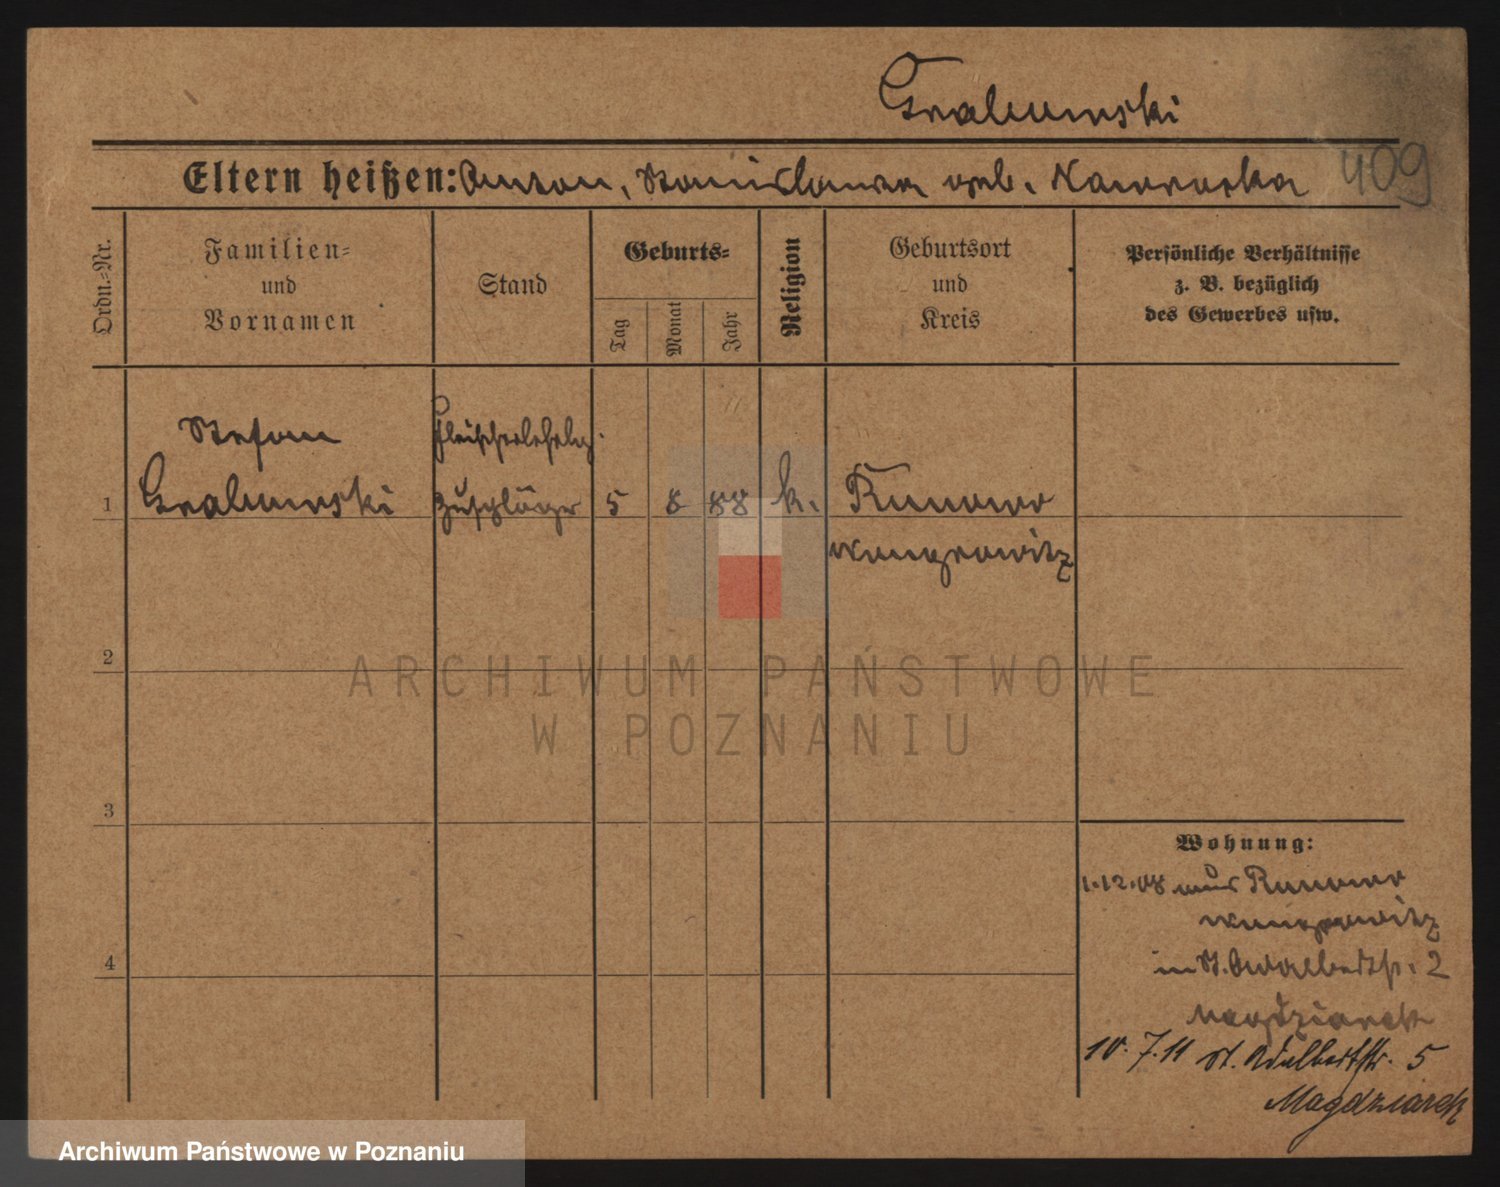 Grabowski
409
Eltern heißen: Anton, Stanislawa geb. Nawrocka
Ordn.-Nr.
Familien-
und
Vornamen
Stand
Geburts-
Tag
Monat
Jahr
Religion
Geburtsort
und
Kreis
Persönliche Verhältnisse
z. B. bezüglich
des Gewerbes usw.
Stefan
Fleischerlehrlg.
1
Grabowski
5
8
88
k.
Runowo
Wongrowitz
2
ARCHIWUM PAŃSTWOWE
W POZNANIU
3
Wohnung:
1.12.08 aus Runowo
Wongrowitz
in St. Adalbertstr. 2
Magdziarek
4
10.7.11 St. Adalbertstr. 5
Magdziarek
Archiwum Państwowe w Poznaniu